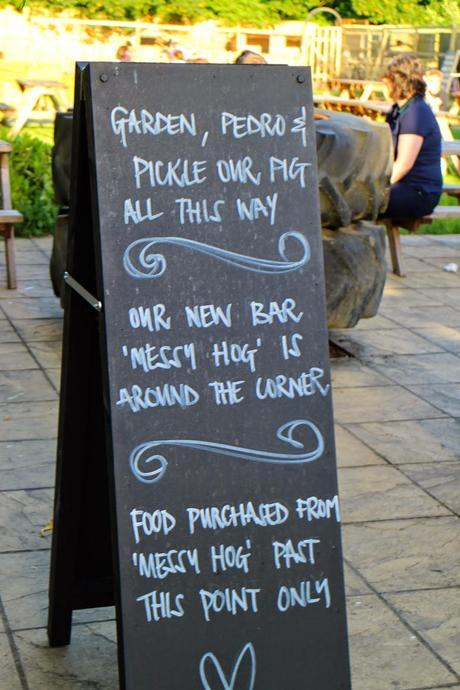 GARDEN, PEDRO &
PICKLE OUR PIG
ALL THIS WAY
OUR NEW BAR
'MESSY HOG' IS
AROUND THE CORNER
FOOD PURCHASED FROM
'MESSY HOG' PAST
THIS POINT ONLY